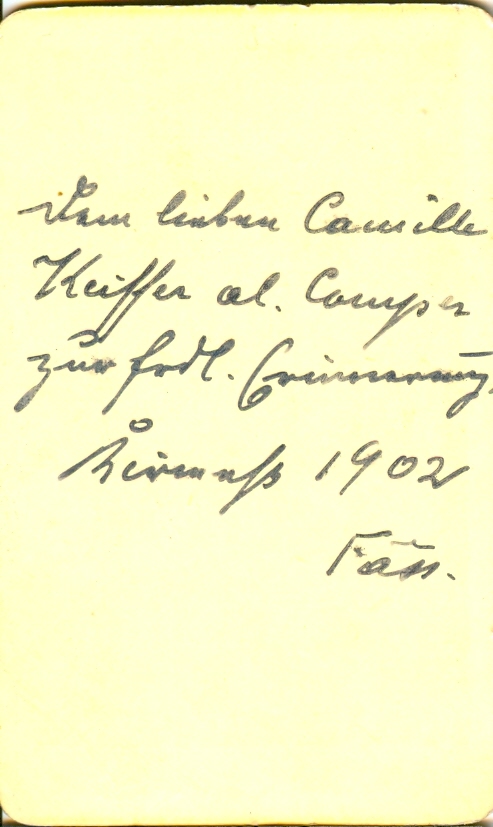 Dem lieben Camille
Keiffer al. Comper
zur frdl. Erinnerung.
1902
Fäss.